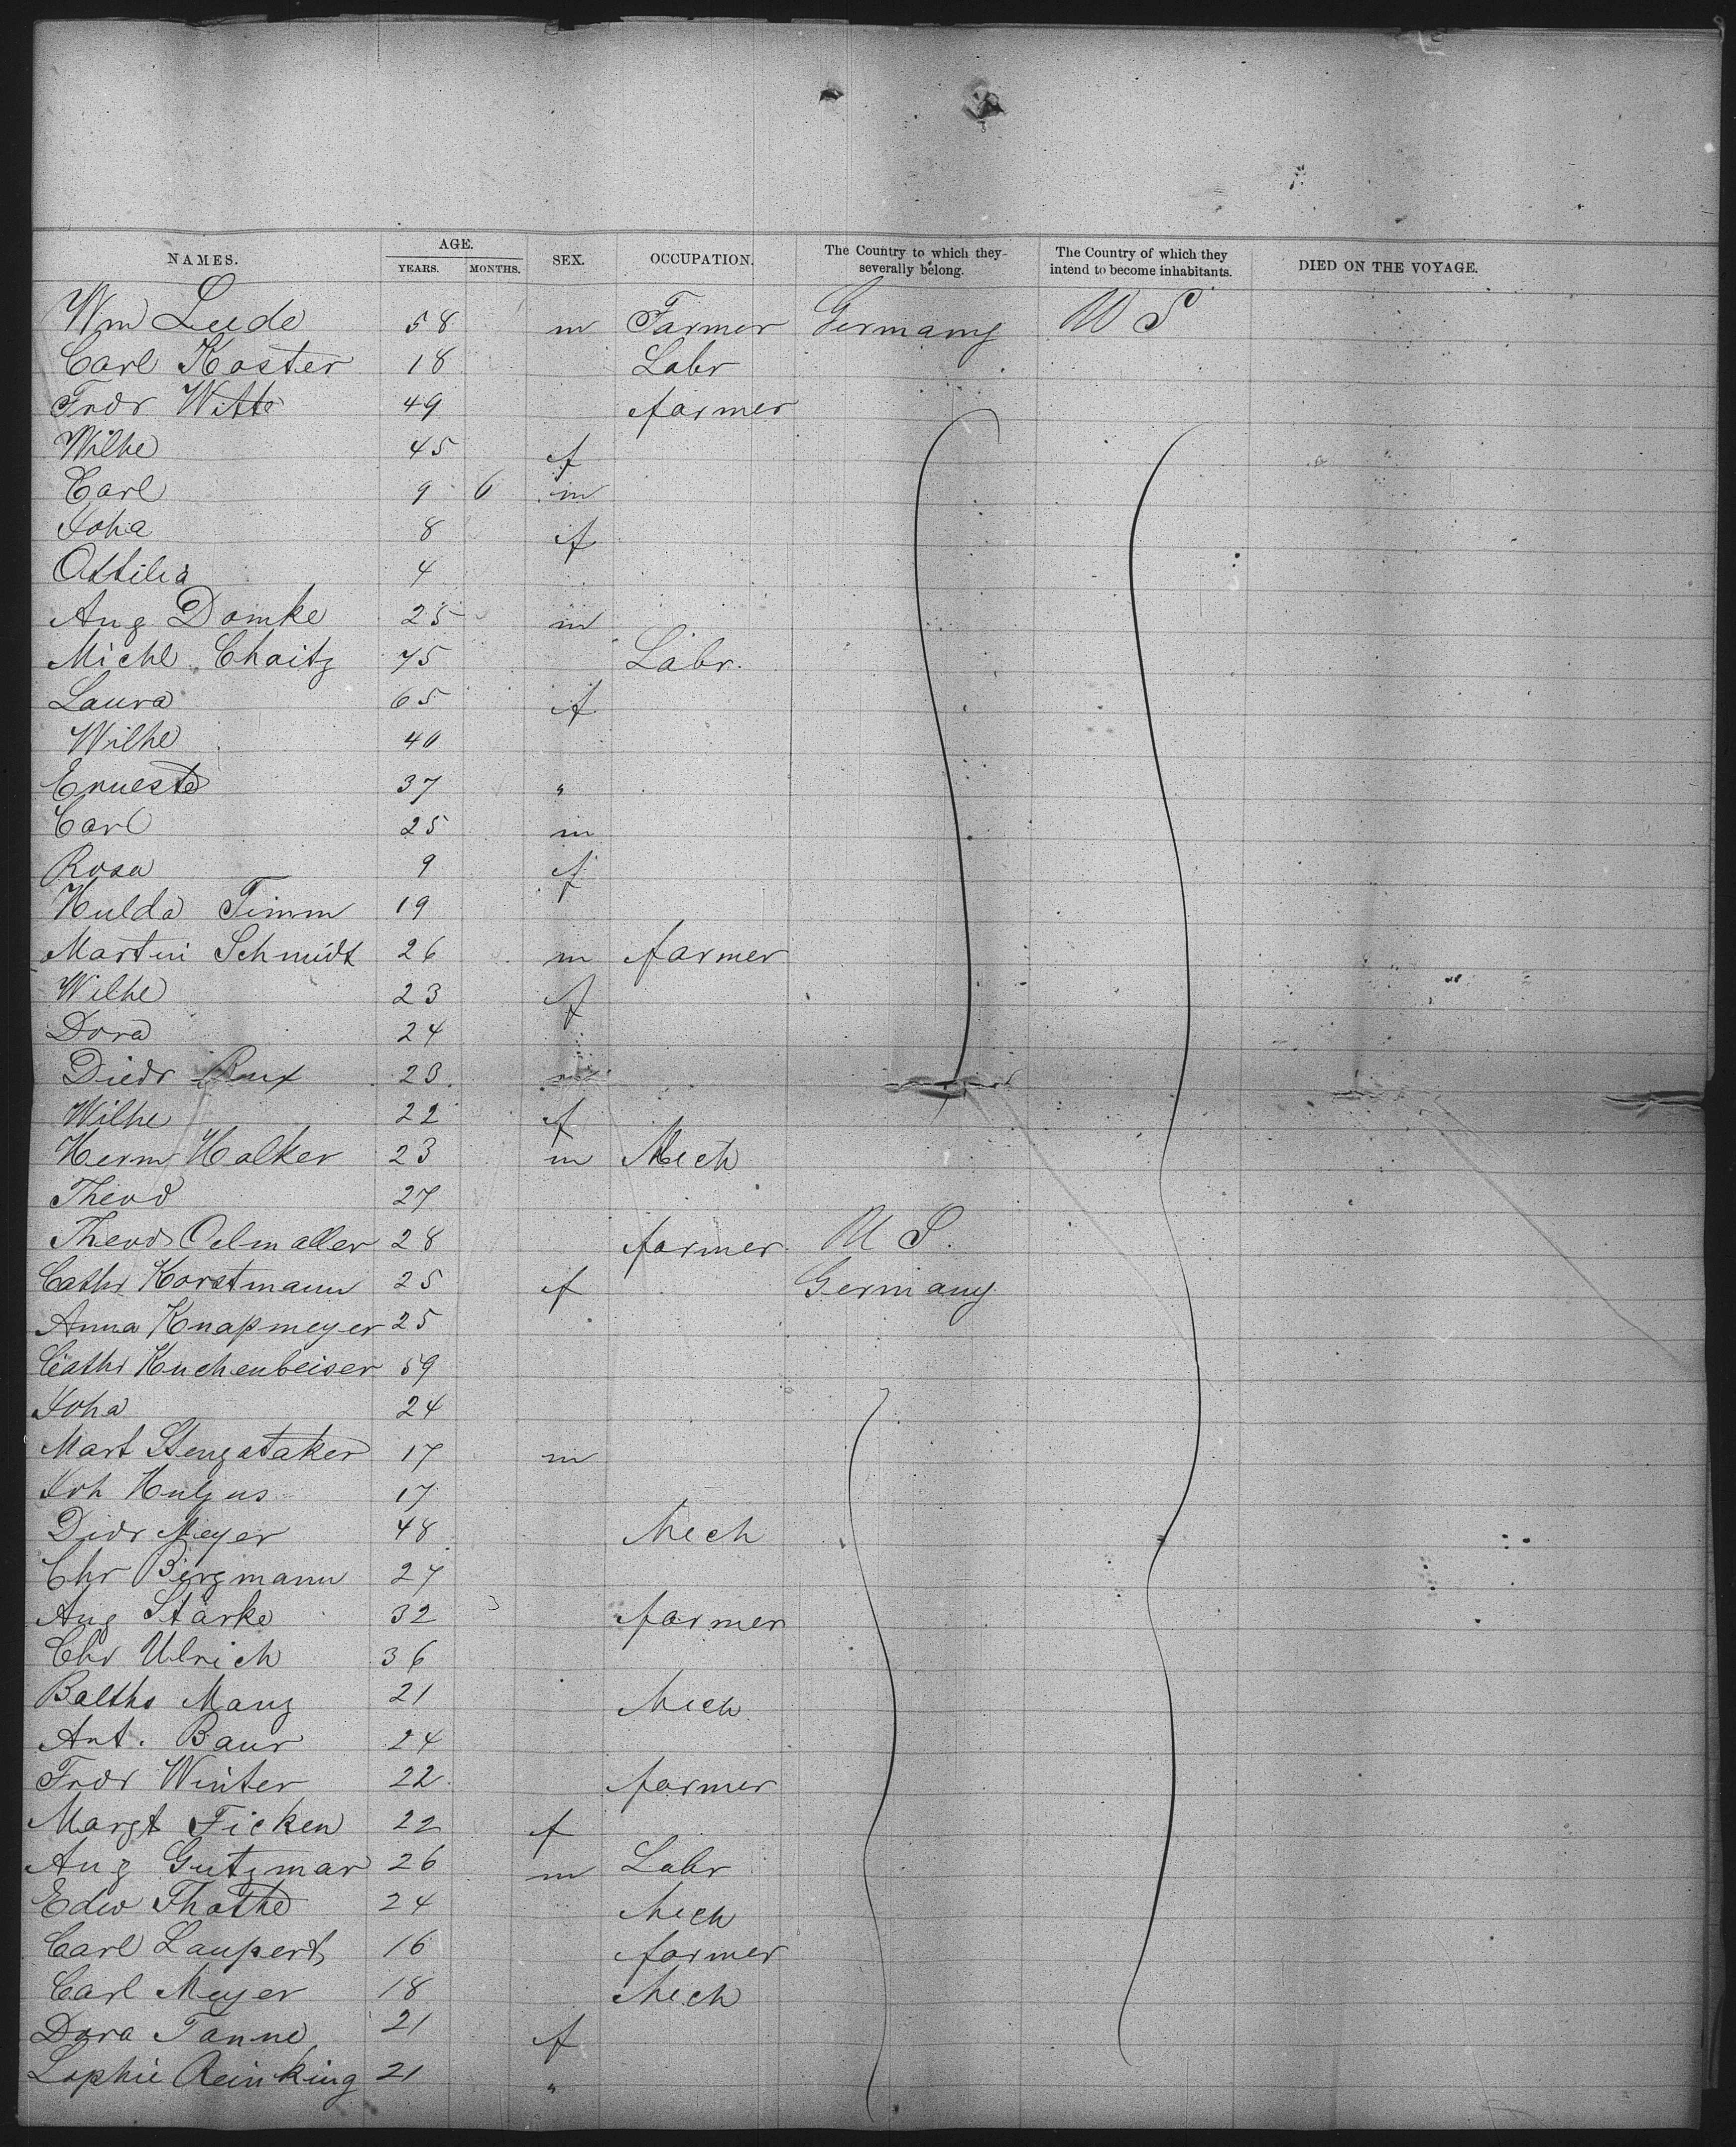 NAMES. AGE. SEX. OCCUPATION. The Country to which they severally belong. The Country of which they intend to become inhabitants. DIED ON THE VOYAGE.
YEARS. MONTHS.
Wm Lude 58 m Farmer Germany U S
Carl Koster 18 Labr
Fredr Witte 49 farmer
Wilhe 45 f
Carl 9 6 m
Joha 8 f
Ottilia 4
Aug Domke 25 m
Michl Chaitz 75 Labr.
Laura 65 f
Wilhe 40
Erneste 37 "
Carl 25 m
Rosa 9 f
Hulda Timm 19
Martin Schmidt 26 m farmer
Wilhe 23 f
Dora 24
Diedr Rux 23 m
Wilhe 22 f
Herm Holker 23 m Mech
Theod 27
Theod Oelmaller 28 farmer U S.
Cathr Korstmann 25 f Germany
Anna Knapmeyer 25
Cathr Kuchenbeiser 59
Joha 24
Mart Stengataker 17 m
Joh Hulgus 17
Didr Meyer 48 Mech
Chr Bergmann 27
Aug Starke 32 farmer
Chr Ulrich 36
Balths Mang 21 Mech
Ant. Baur 24
Fredr Winter 22 farmer
Margt Ficken 22 f
Aug Gutzmar 26 m Labr
Edw Thothe 24 Mech
Carl Laupert 16 farmer
Carl Meyer 18 Mech
Dora Tanne 21 f
Sophie Reinking 21 "